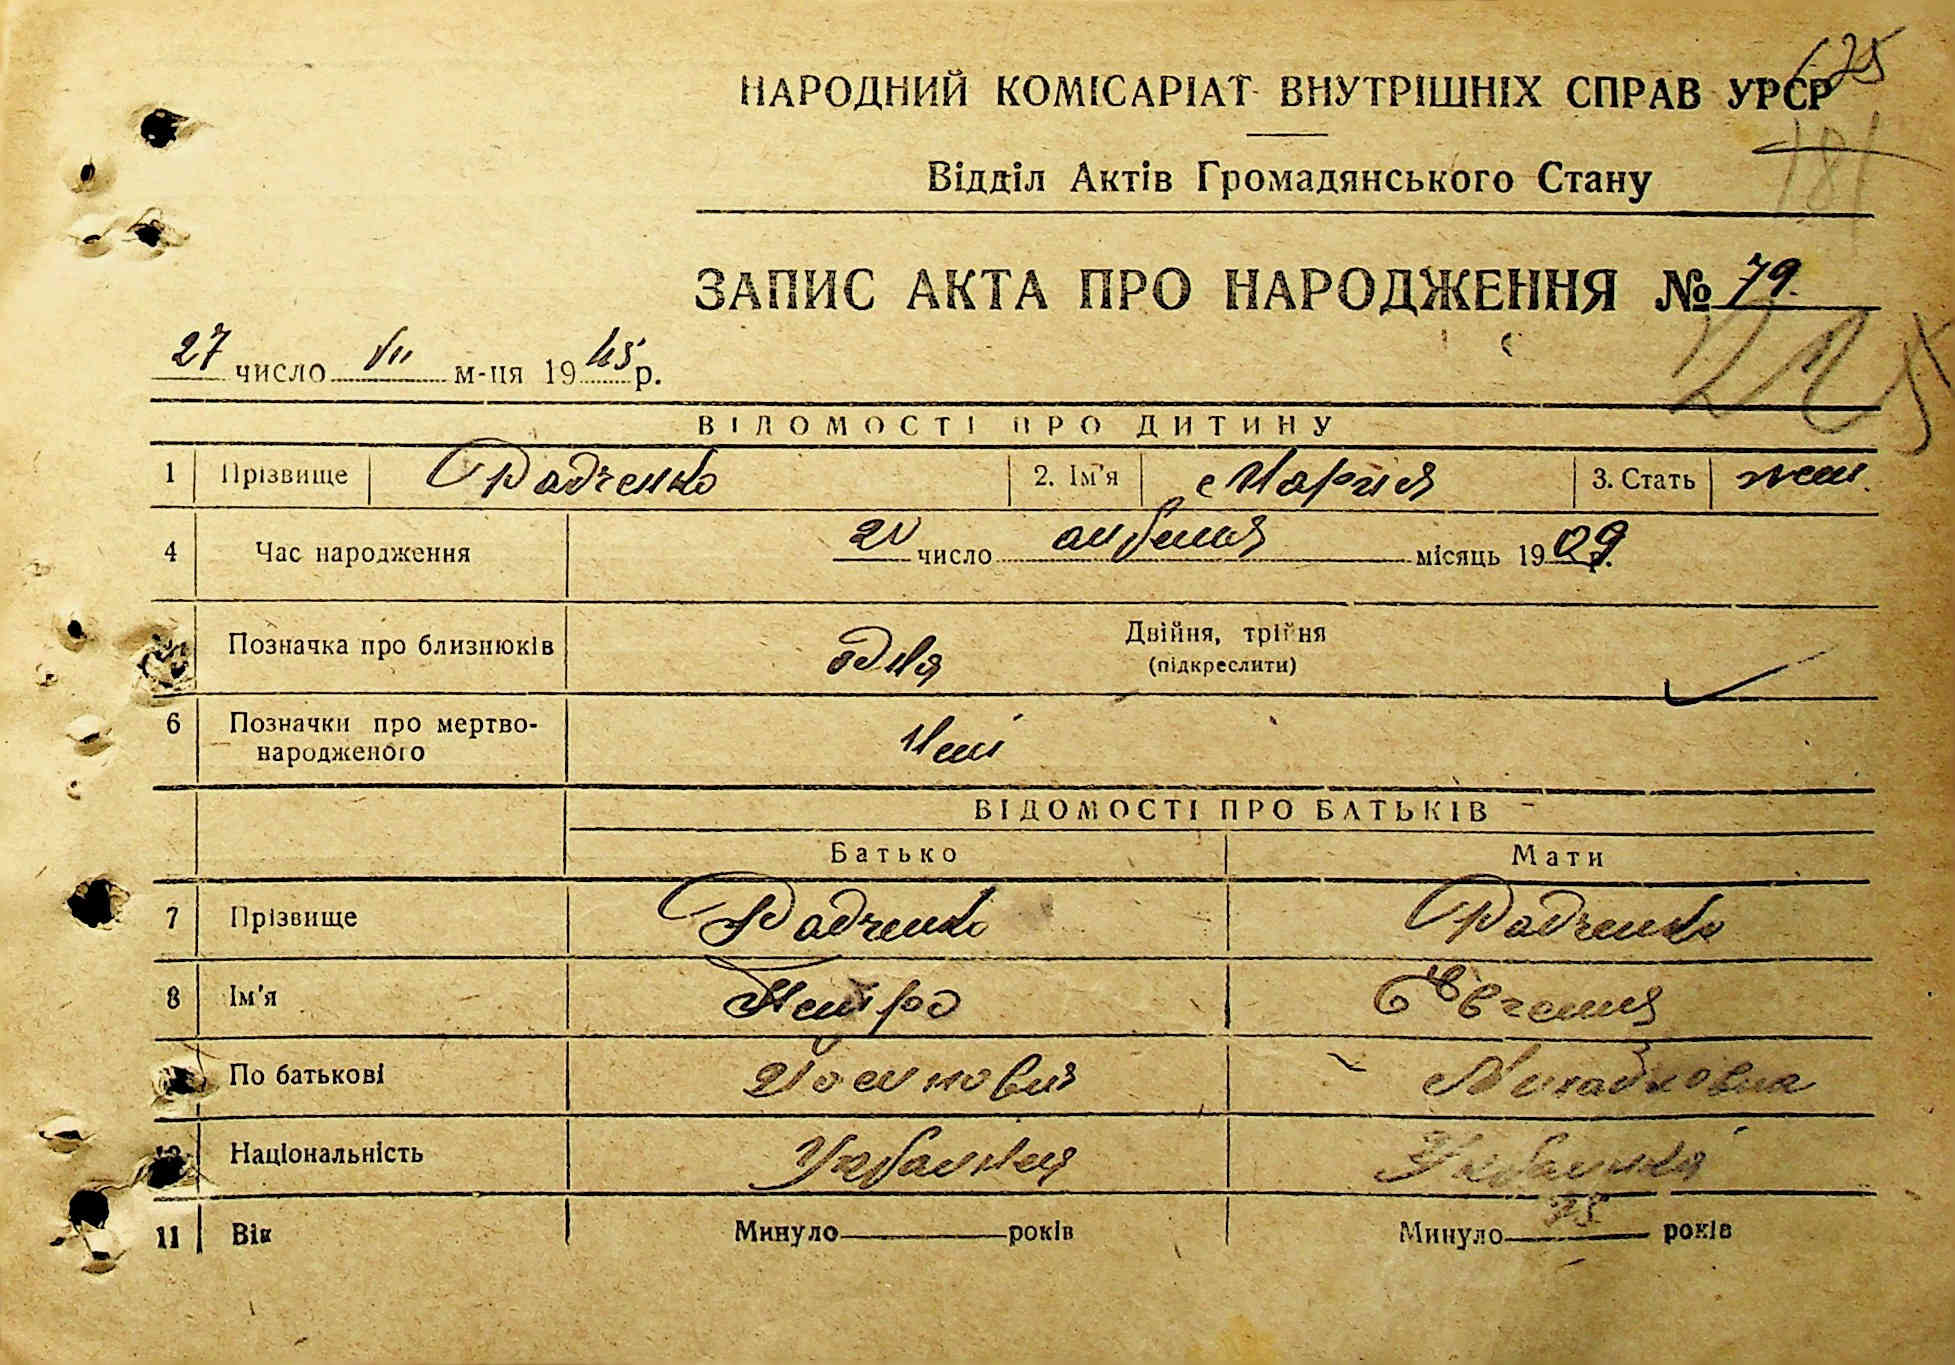 125
НАРОДНИЙ КОМІСАРІАТ ВНУТРІШНІХ СПРАВ УРСР
181
Відділ Актів Громадянського Стану
ЗАПИС АКТА ПРО НАРОДЖЕННЯ № 79.
27 число VII м-ця 1945 р.
ВІДОМОСТІ ПРО ДИТИНУ
1 Прізвище Радченко 2. Ім'я Мария 3. Стать жен.
4 Час народження число місяць 1909 р.
Позначка про близнюків одна Двійня, трійня
(підкреслити)
6 Позначки про мертво-
народженого Нет
ВІДОМОСТІ ПРО БАТЬКІВ
Батько Мати
7 Прізвище Радченко Радченко
8 Ім'я Петро Евгения
По батькові Михайловна
Національність
11 Вік Минуло роківМинуло 35 років